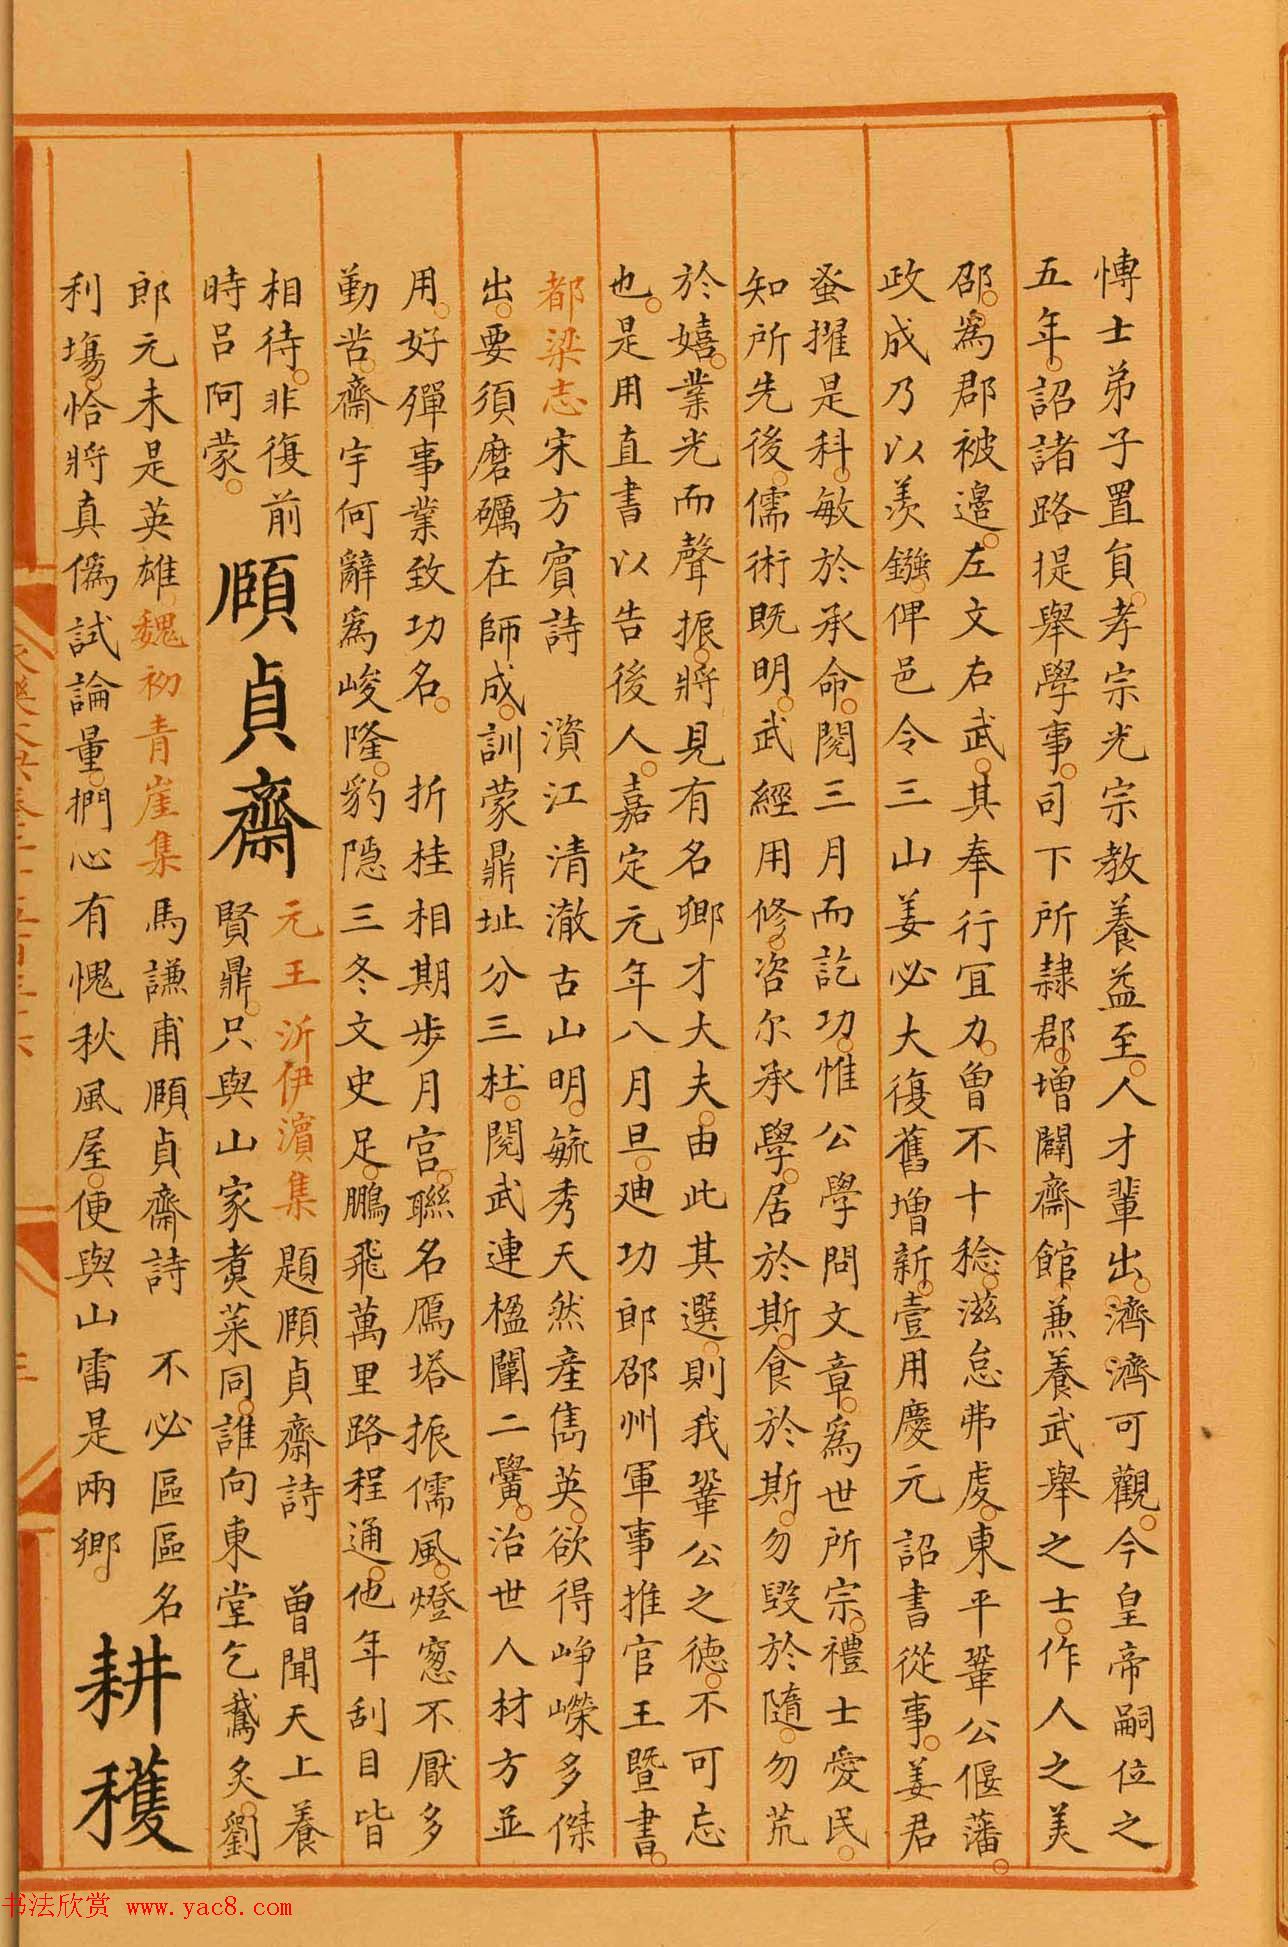 愽士弟子置員孝宗光宗教養益至人才輩出濟濟可觀今皇帝嗣位之
五年詔諸路提舉學事司下所隷郡增闢齋館兼養武舉之士作人之美
邵爲郡被邊左文右武其奉行冝力曾不十稔滋怠弗虔東平鞏公偃藩
政成乃以羨鏹俾邑令三山姜必大復舊增新壹用慶元詔書從事姜君
蚤擢是科敏於承命閱三月而訖功惟公學問文章爲世所宗禮士愛民
知所先後儒術既明武經用修咨尔承學居於斯食於斯勿毁於隨勿荒
於嬉業光而聲振將見有名卿才大夫由此其選則我鞏公之德不可忘
也是用直書以告後人嘉定元年八月旦廸功郎邵州軍事推官王暨書
都梁志宋方賔詩 濱江清澈古山明毓秀天然産雋英欲得崢嶸多傑
出要須磨礪在師成訓蒙鼎址分三杜閱武連楹闡二黌治世人材方並
用好殫事業致功名 折桂相期步月宮聯名鴈塔振儒風燈窻不厭多
勤苦齋宇何辭爲峻隆豹隱三冬文史足鵬飛萬里路程通他年刮目皆
相待非復前
時吕阿蒙
頥貞齋
元王沂伊濵集題頥貞齋詩 曾聞天上養
賢鼎只與山家煑菜同誰向東堂乞鵞炙劉
郎元未是英雄魏初青崖集馬謙甫頥貞齋詩 不必區區名
利塲恰將真僞試論量捫心有愧秋風屋便與山雷是兩鄉
耕穫
书法欣赏 www.yac8.com